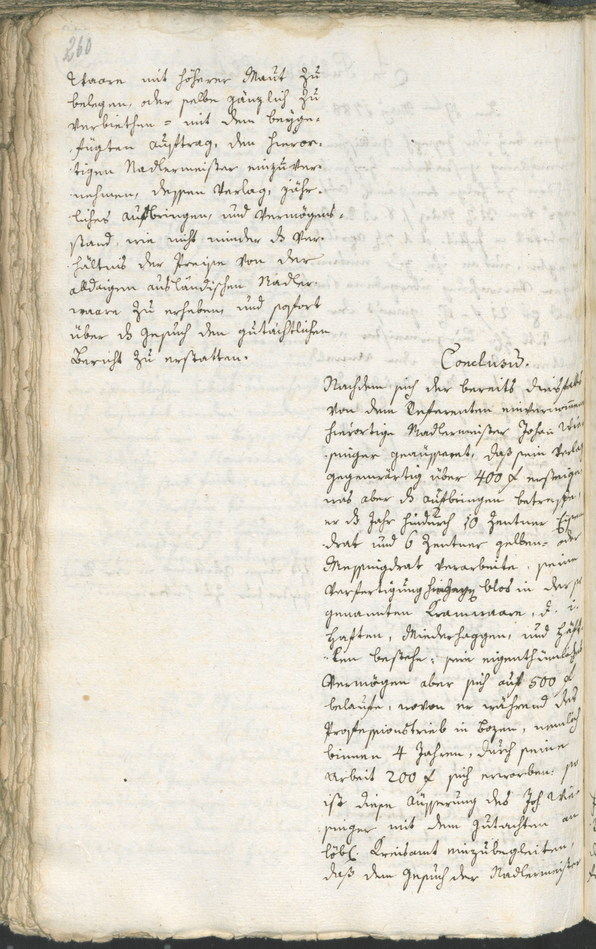 260
Waare mit höherer Maut zu
belegen, oder selbe gänzlich zu
verbiethen = mit dem beyge-
fügten Auftrag, den hieror-
tigen Nadlermeister einzuver-
nehmen, dessen Verlag, jähr-
liches Aufbringen, und Vermögens-
stand, wie nicht minder dz Ver-
hältnis der Preise von der
alldaigen ausländischen Nadler-
waare zu erheben, und sofort
über dz Gesuch den gutächtlichen
Bericht zu erstatten.
Conclusum.
Nachdem sich der bereits diesfalls
von dem Referenten einvernommene
hierortige Nadlermeister Johan
singer geäussert, daß sein Verlag
gegenwärtig über 400 f ersteige
was aber dz Aufbringen betreffe,
er dz Jahr hindurch 10 Zentner Eisen
drat und 6 Zentner gelben- oder
Messingdrat verarbeite, seine
Verfertigung hingegen blos in der so
genannten Kramwaare, d. i.
Haften, Miederhaggen, und Häft-
len bestehe; sein eigenthümliches
Vermögen aber sich auf 500 f
belaufe, wovon er während des
Professionstrieb in Bozen, nemlich
binnen 4 Jahren, durch seine
Arbeit 200 f sich erworben: so
ist diese Äusserung des Joh
singer mit dem Gutachten an
löbl. Kreisamt einzubegleiten,
daß dem Gesuch der Nadlermeister